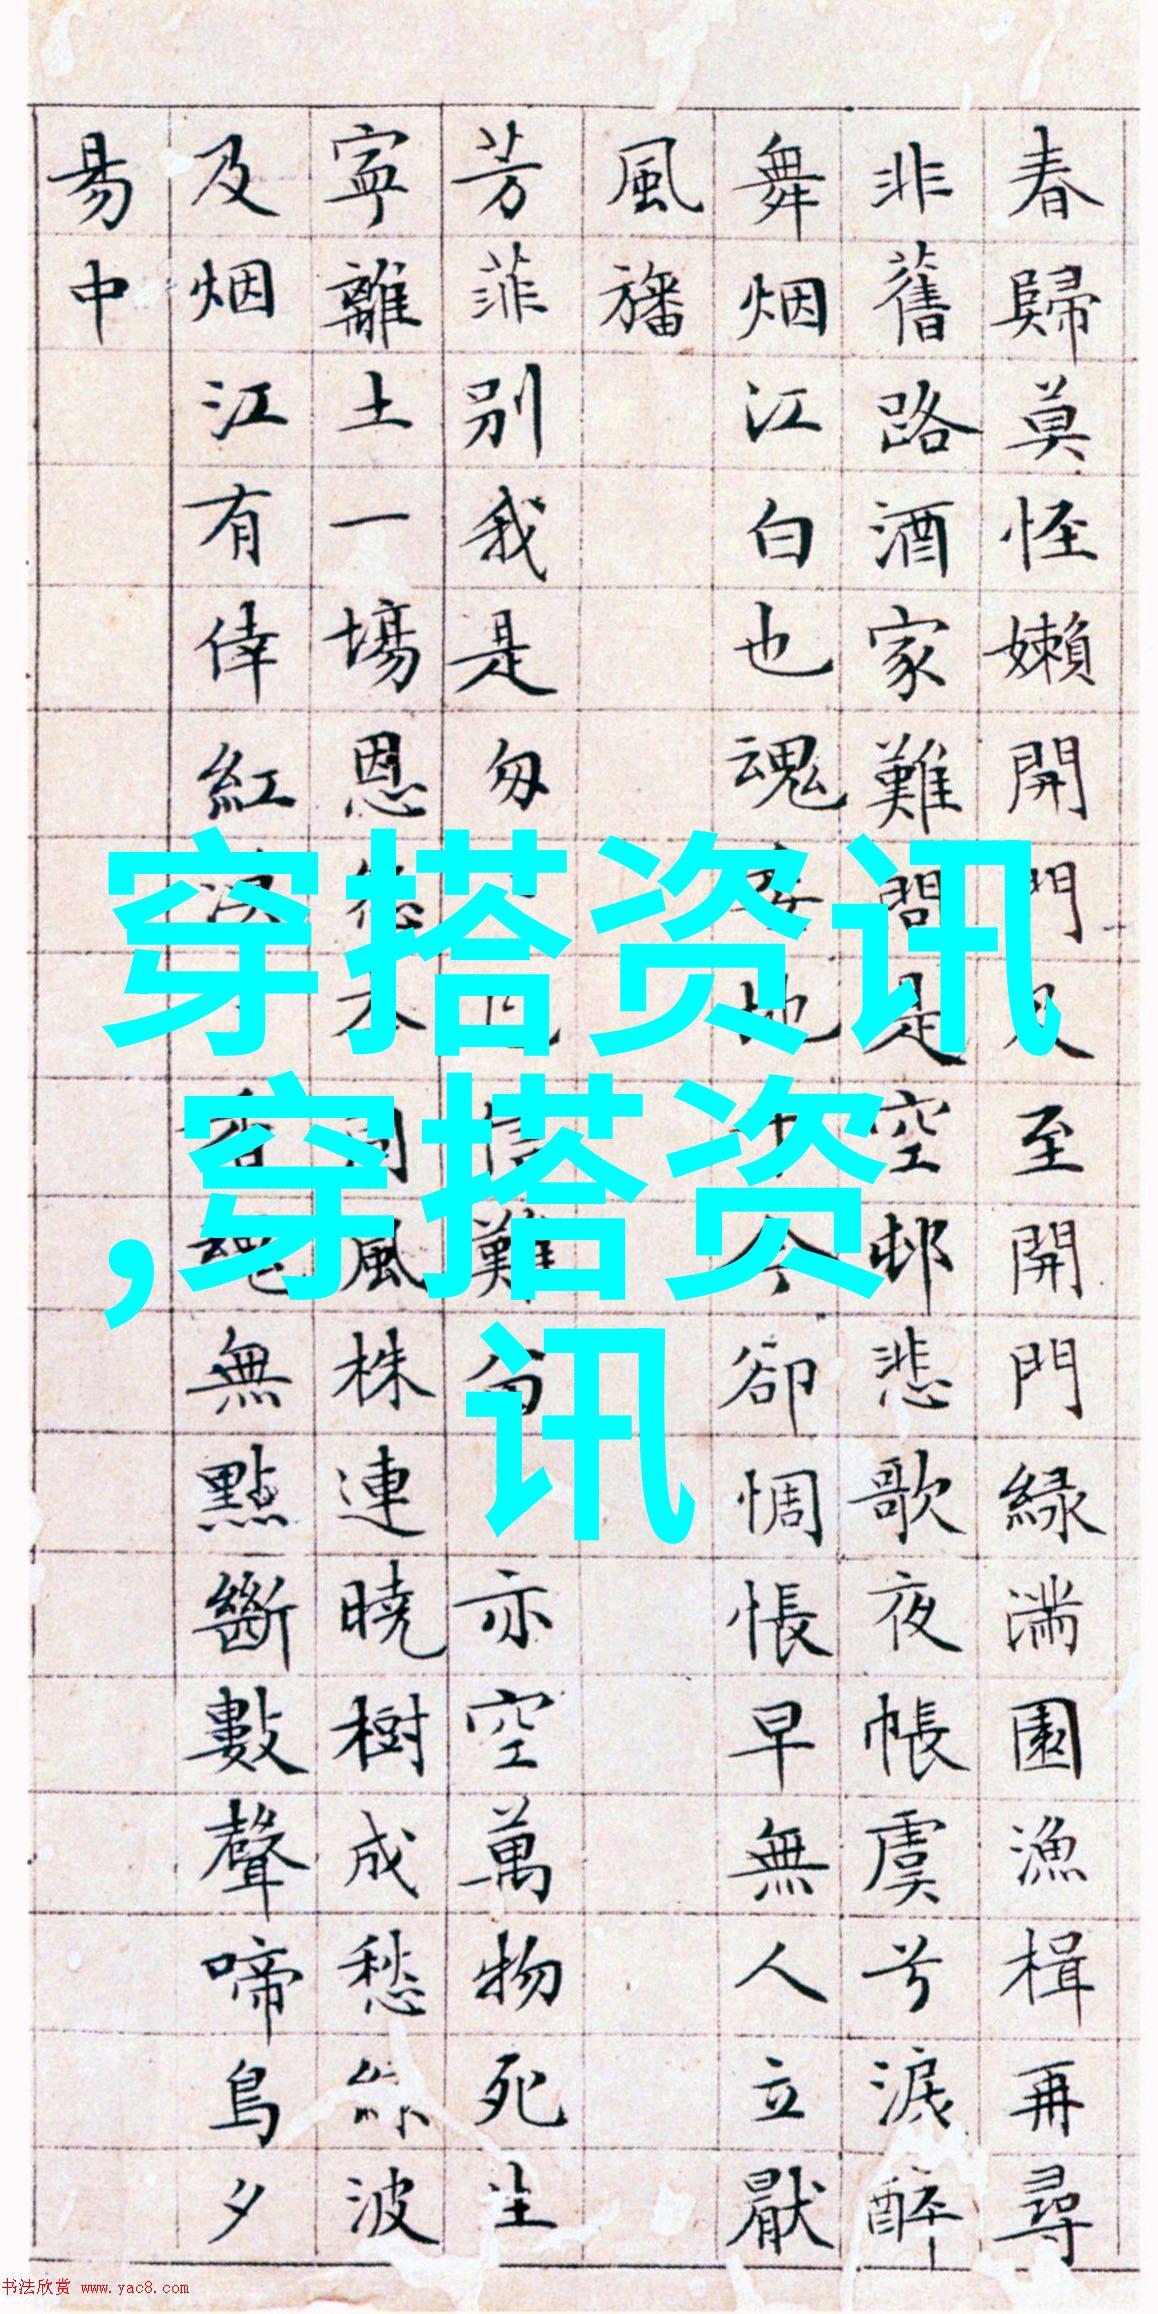 春歸莫怪嬾開門及至開門緑滿園漁楫再尋
非舊路酒家難問是空邨悲歌夜帳虞兮淚醉
舞烟江白也魂委地于今卻惆悵早無人立厭
風旛
芳菲别我是匆匆信難留亦空萬物死生
寧離土一場恩怨本同風株連曉樹成愁綠波
及烟江有倖紅漠香魂無點斷數聲啼鳥夕
易中
穿搭资讯
,穿搭资
讯
书法欣赏 www.yac8.com